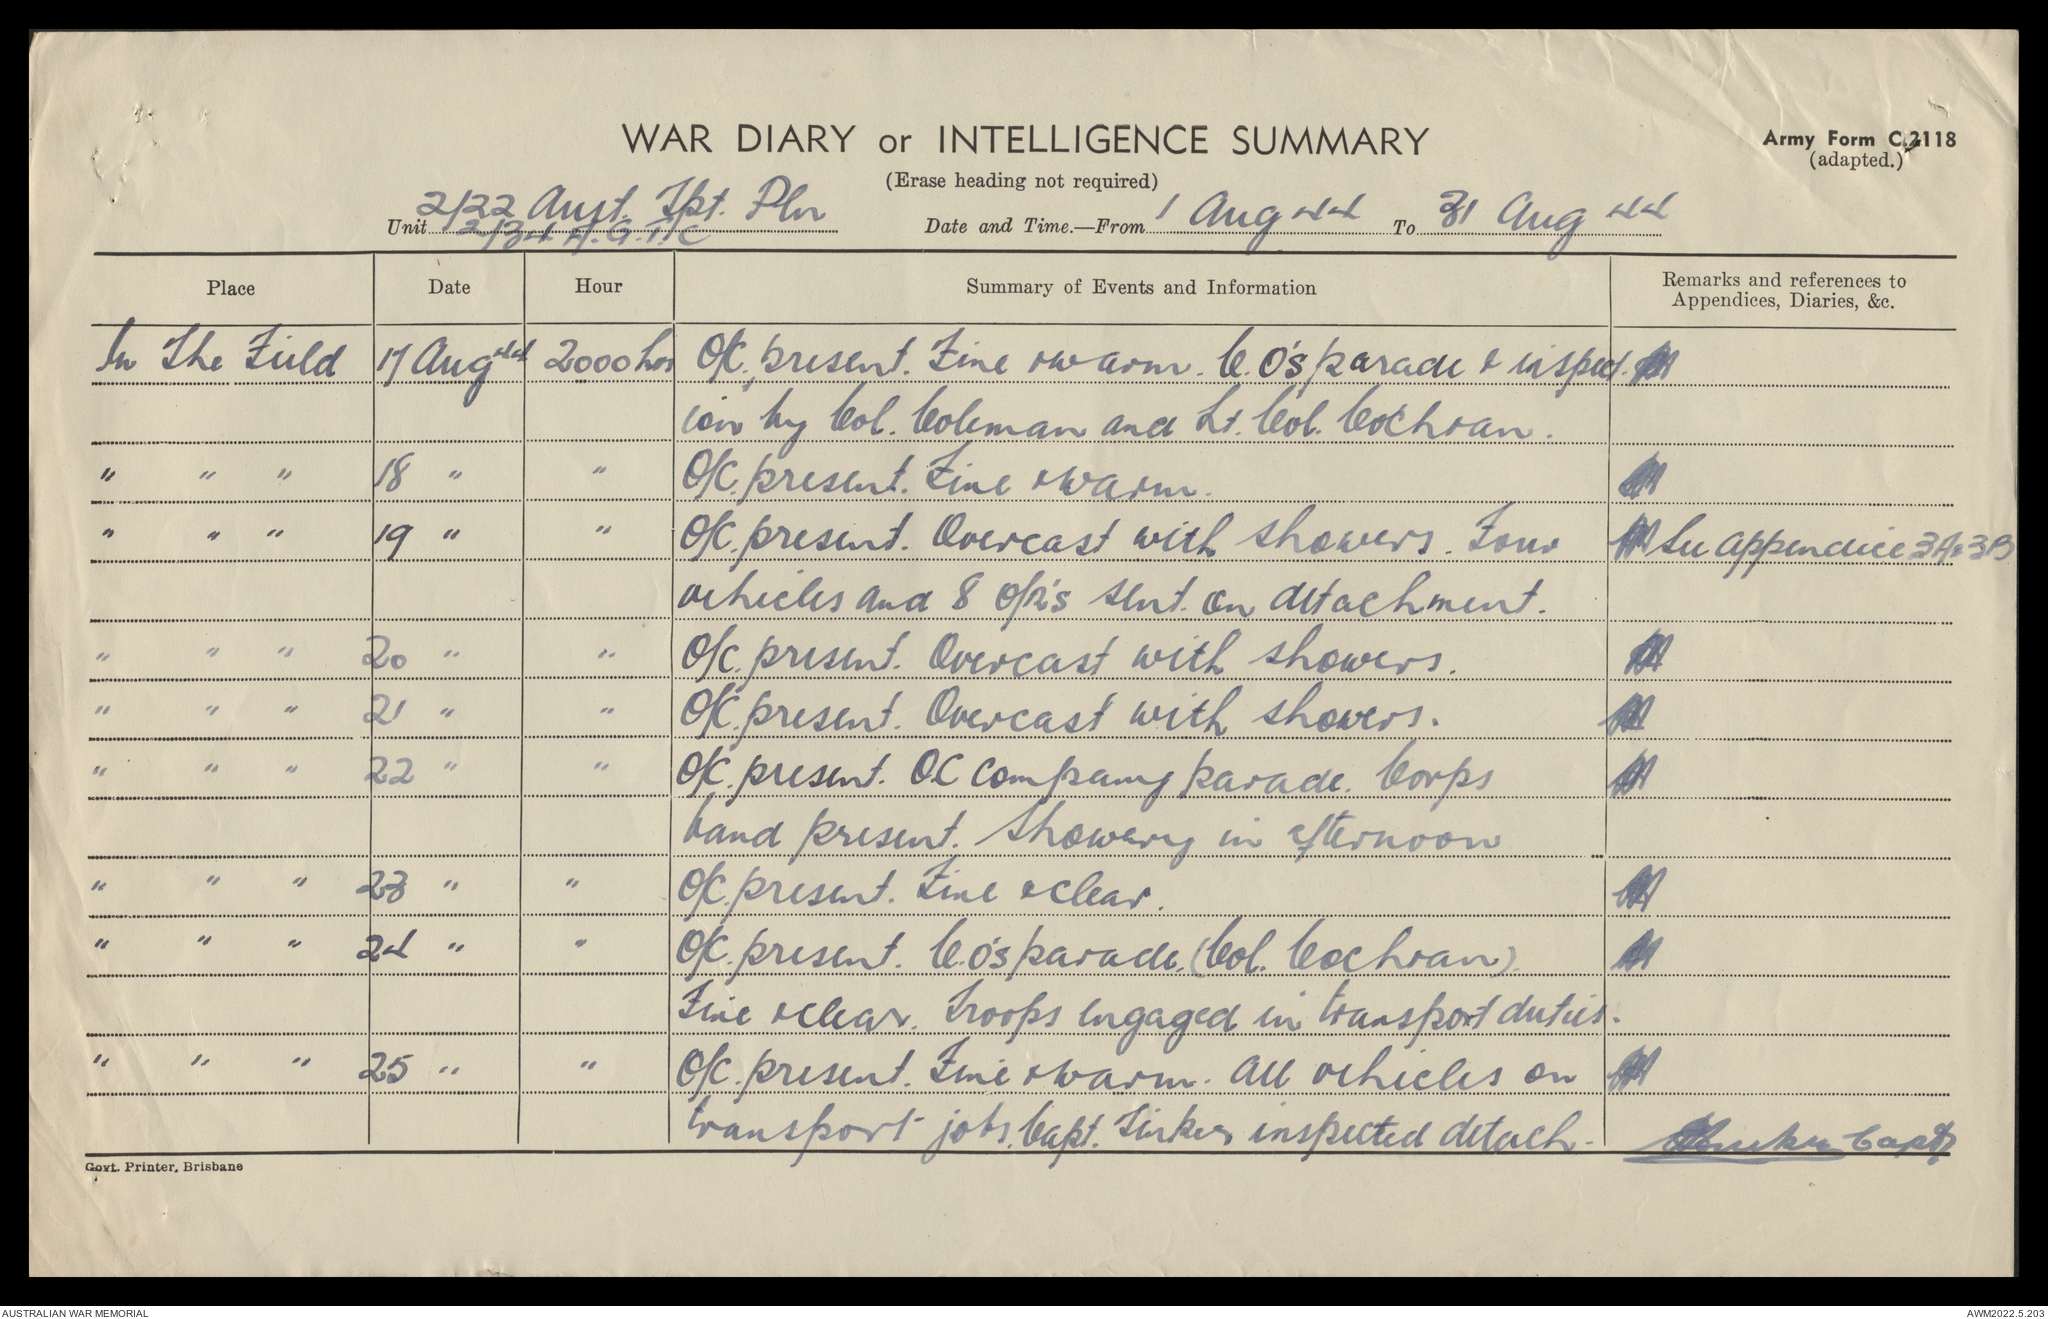 WAR DIARY or INTELLIGENCE SUMMARY
Army Form C.2118
(adapted.)
(Erase heading not required)
Unit 2/22 Aust. Tpt. Pln
2/34 A.G.T.C
Date and Time.—From 1 Aug 44 To 31 Aug 44
Place Date Hour Summary of Events and Information Remarks and references to
Appendices, Diaries, &c.
In The Field 17 Aug 44 2000 hrs O/C. present. Fine & warm. C.O's parade & inspect
ion by Col. Coleman and Lt. Col. Cochran.
" " " 18 " " O/C. present. Fine & warm.
" " " 19 " " O/C. present. Overcast with showers. Four See appendice 3A & 3B
vehicles and 8 O/R's sent on detachment.
" " " 20 " " O/C. present. Overcast with showers.
" " " 21 " " O/C. present. Overcast with showers.
" " " 22 " " O/C. present. OC Company parade. Corps
band present. Showery in afternoon
" " " 23 " " O/C. present. Fine & clear.
" " " 24 " " O/C. present. C.O's parade. (Col. Cochran).
Fine & clear. Troops engaged in transport duties.
" " " 25 " " O/C. present. Fine & warm. All vehicles on
transport jobs. Capt. Tinker inspected detach- Capt
Govt. Printer, Brisbane
AUSTRALIAN WAR MEMORIAL AWM2022.5.203